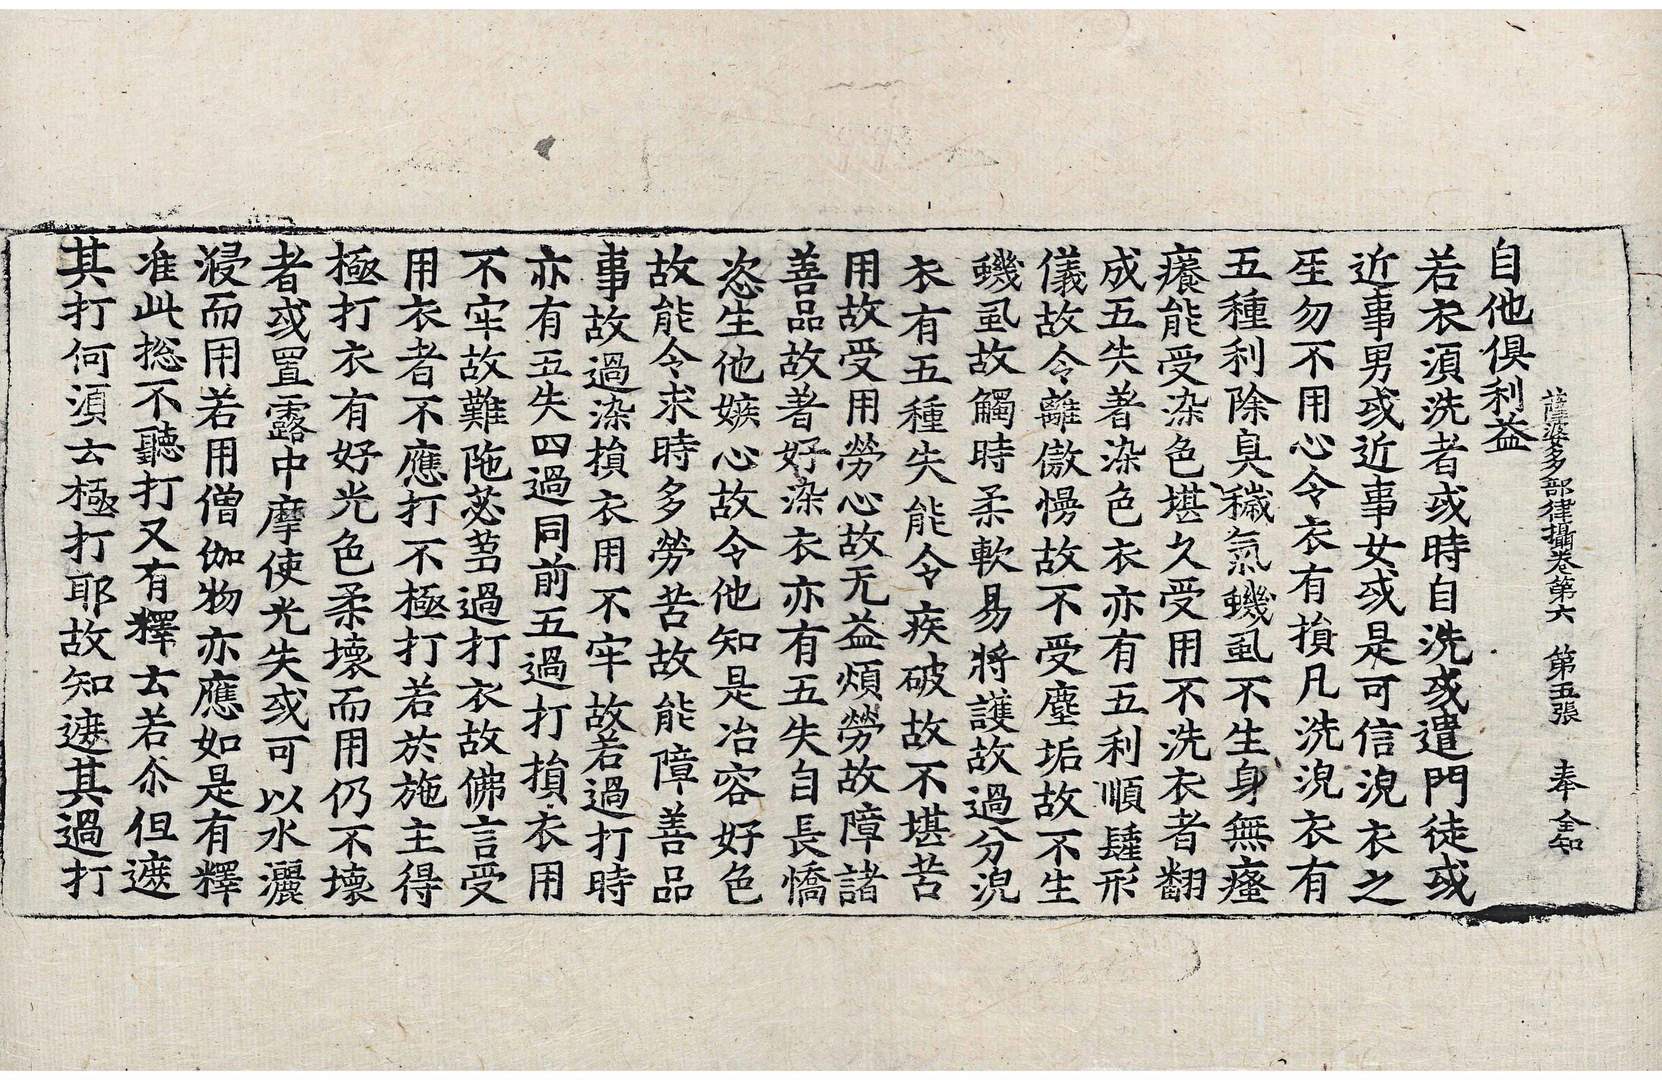 薩婆多部律攝卷第六　第五張　奉　全知
自他俱利益
若衣湏洗者或時自洗或遣門徒或
近事男或近事女或是可信浣衣之
𤯔勿不用心令衣有損凡洗浣衣有
五種利除臭穢氣蟣虱不生身無瘙
癢能受染色堪久受用不洗衣者翻
成五失著染色衣亦有五利順𨈛形
儀故令離傲慢故不受塵垢故不生
蟣虱故觸時柔軟易將護故過分浣
衣有五種失能令疾破故不堪苦
用故受用勞心故无益煩勞故障諸
善品故著好染衣亦有五失自長憍
恣生他嫉心故令他知是冶容好色
故能令求時多勞苦故能障善品
事故過染損衣用不牢故若過打時
亦有五失四過同前五過打損衣用
不牢故難陁苾芻過打衣故佛言受
用衣者不應打不極打若於施主得
極打衣有好光色柔壞而用仍不壞
者或置露中摩使光失或可以水灑
浸而用若用僧伽物亦應如是有釋
准此揔不聽打又有釋云若尒但遮
其打何湏云極打耶故知遮其過打